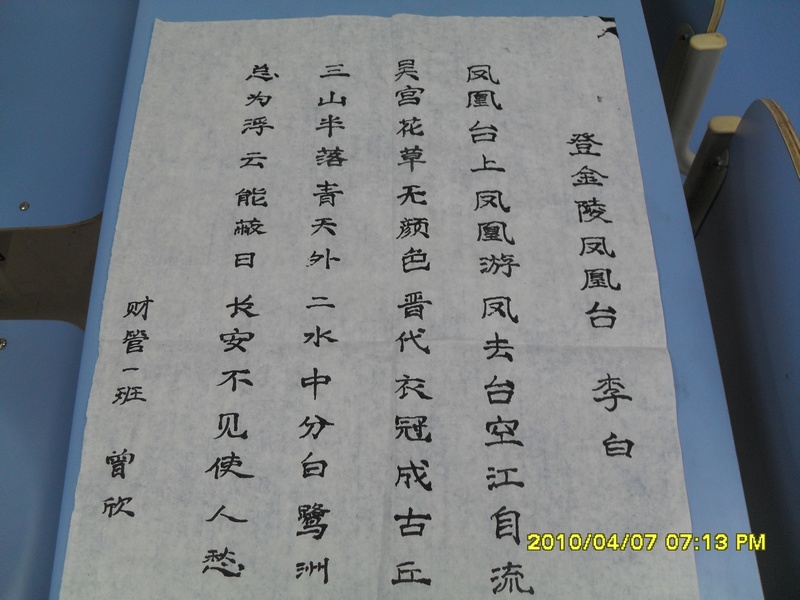 登金陵凤凰台 李白
凤凰台上凤凰游 凤去台空江自流
吴宫花草无颜色 晋代衣冠成古丘
三山半落青天外 二水中分白鹭洲
总为浮云能蔽日 长安不见使人愁
财管一班 曾欣
2010/04/07 07:13 PM